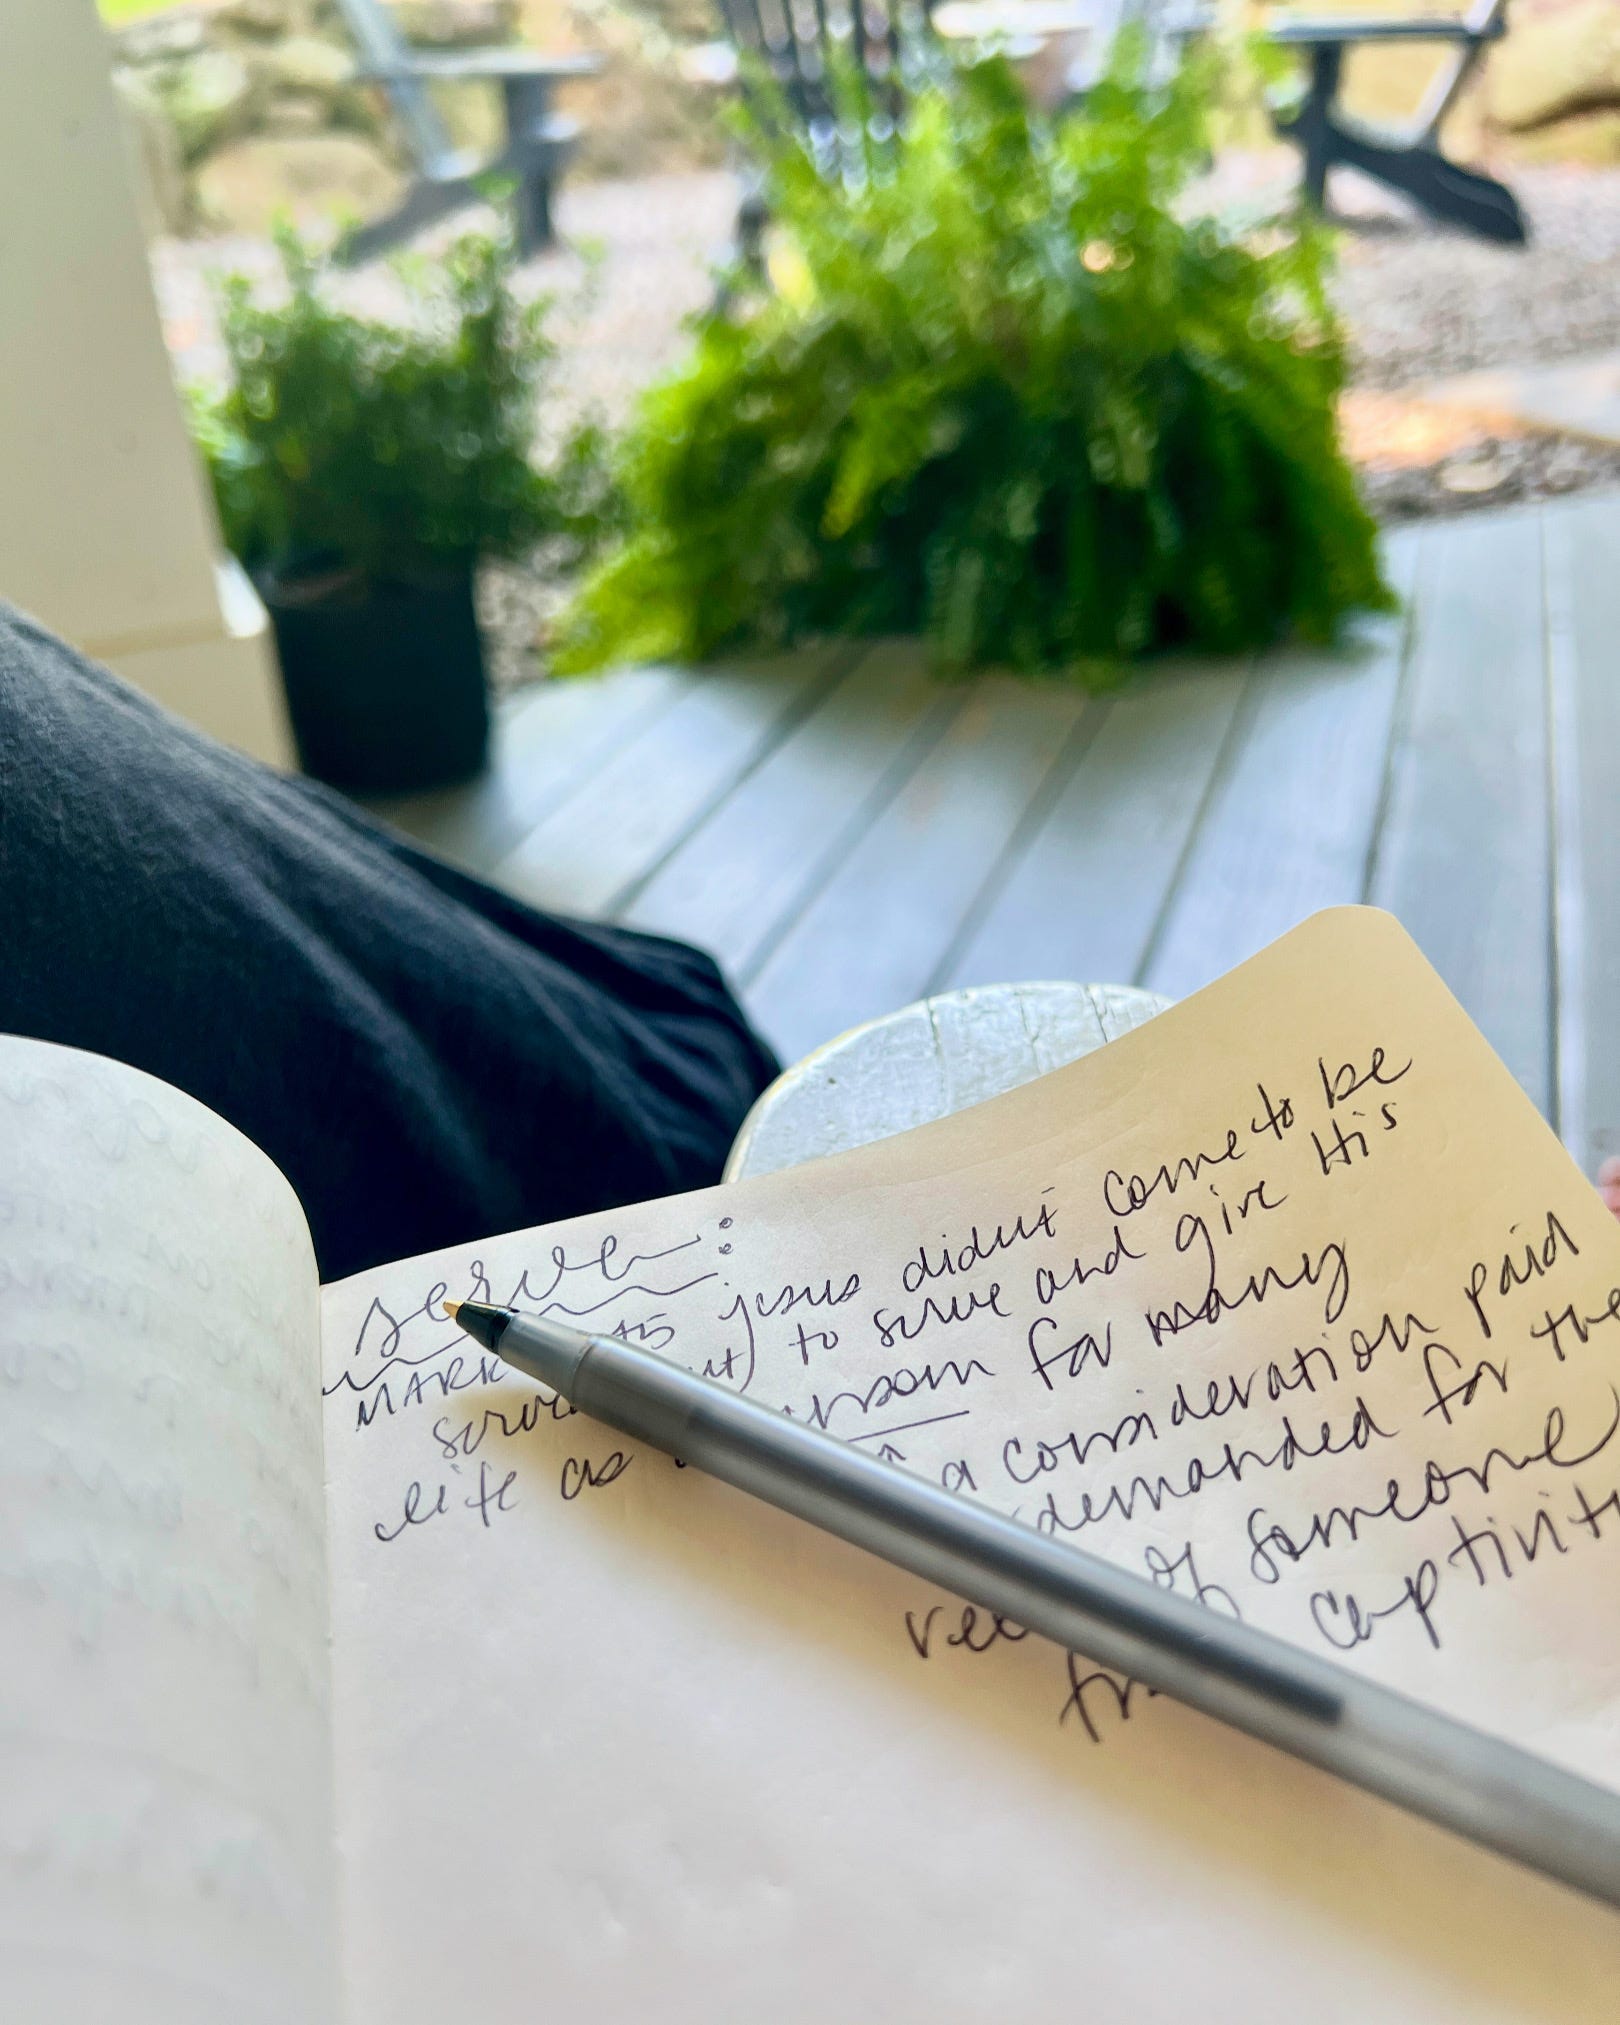 serve:
MARK 45 Jesus didn't come to be
to serve and give His
life as ransom for many
a consideration paid
demanded for the
of someone
captivit